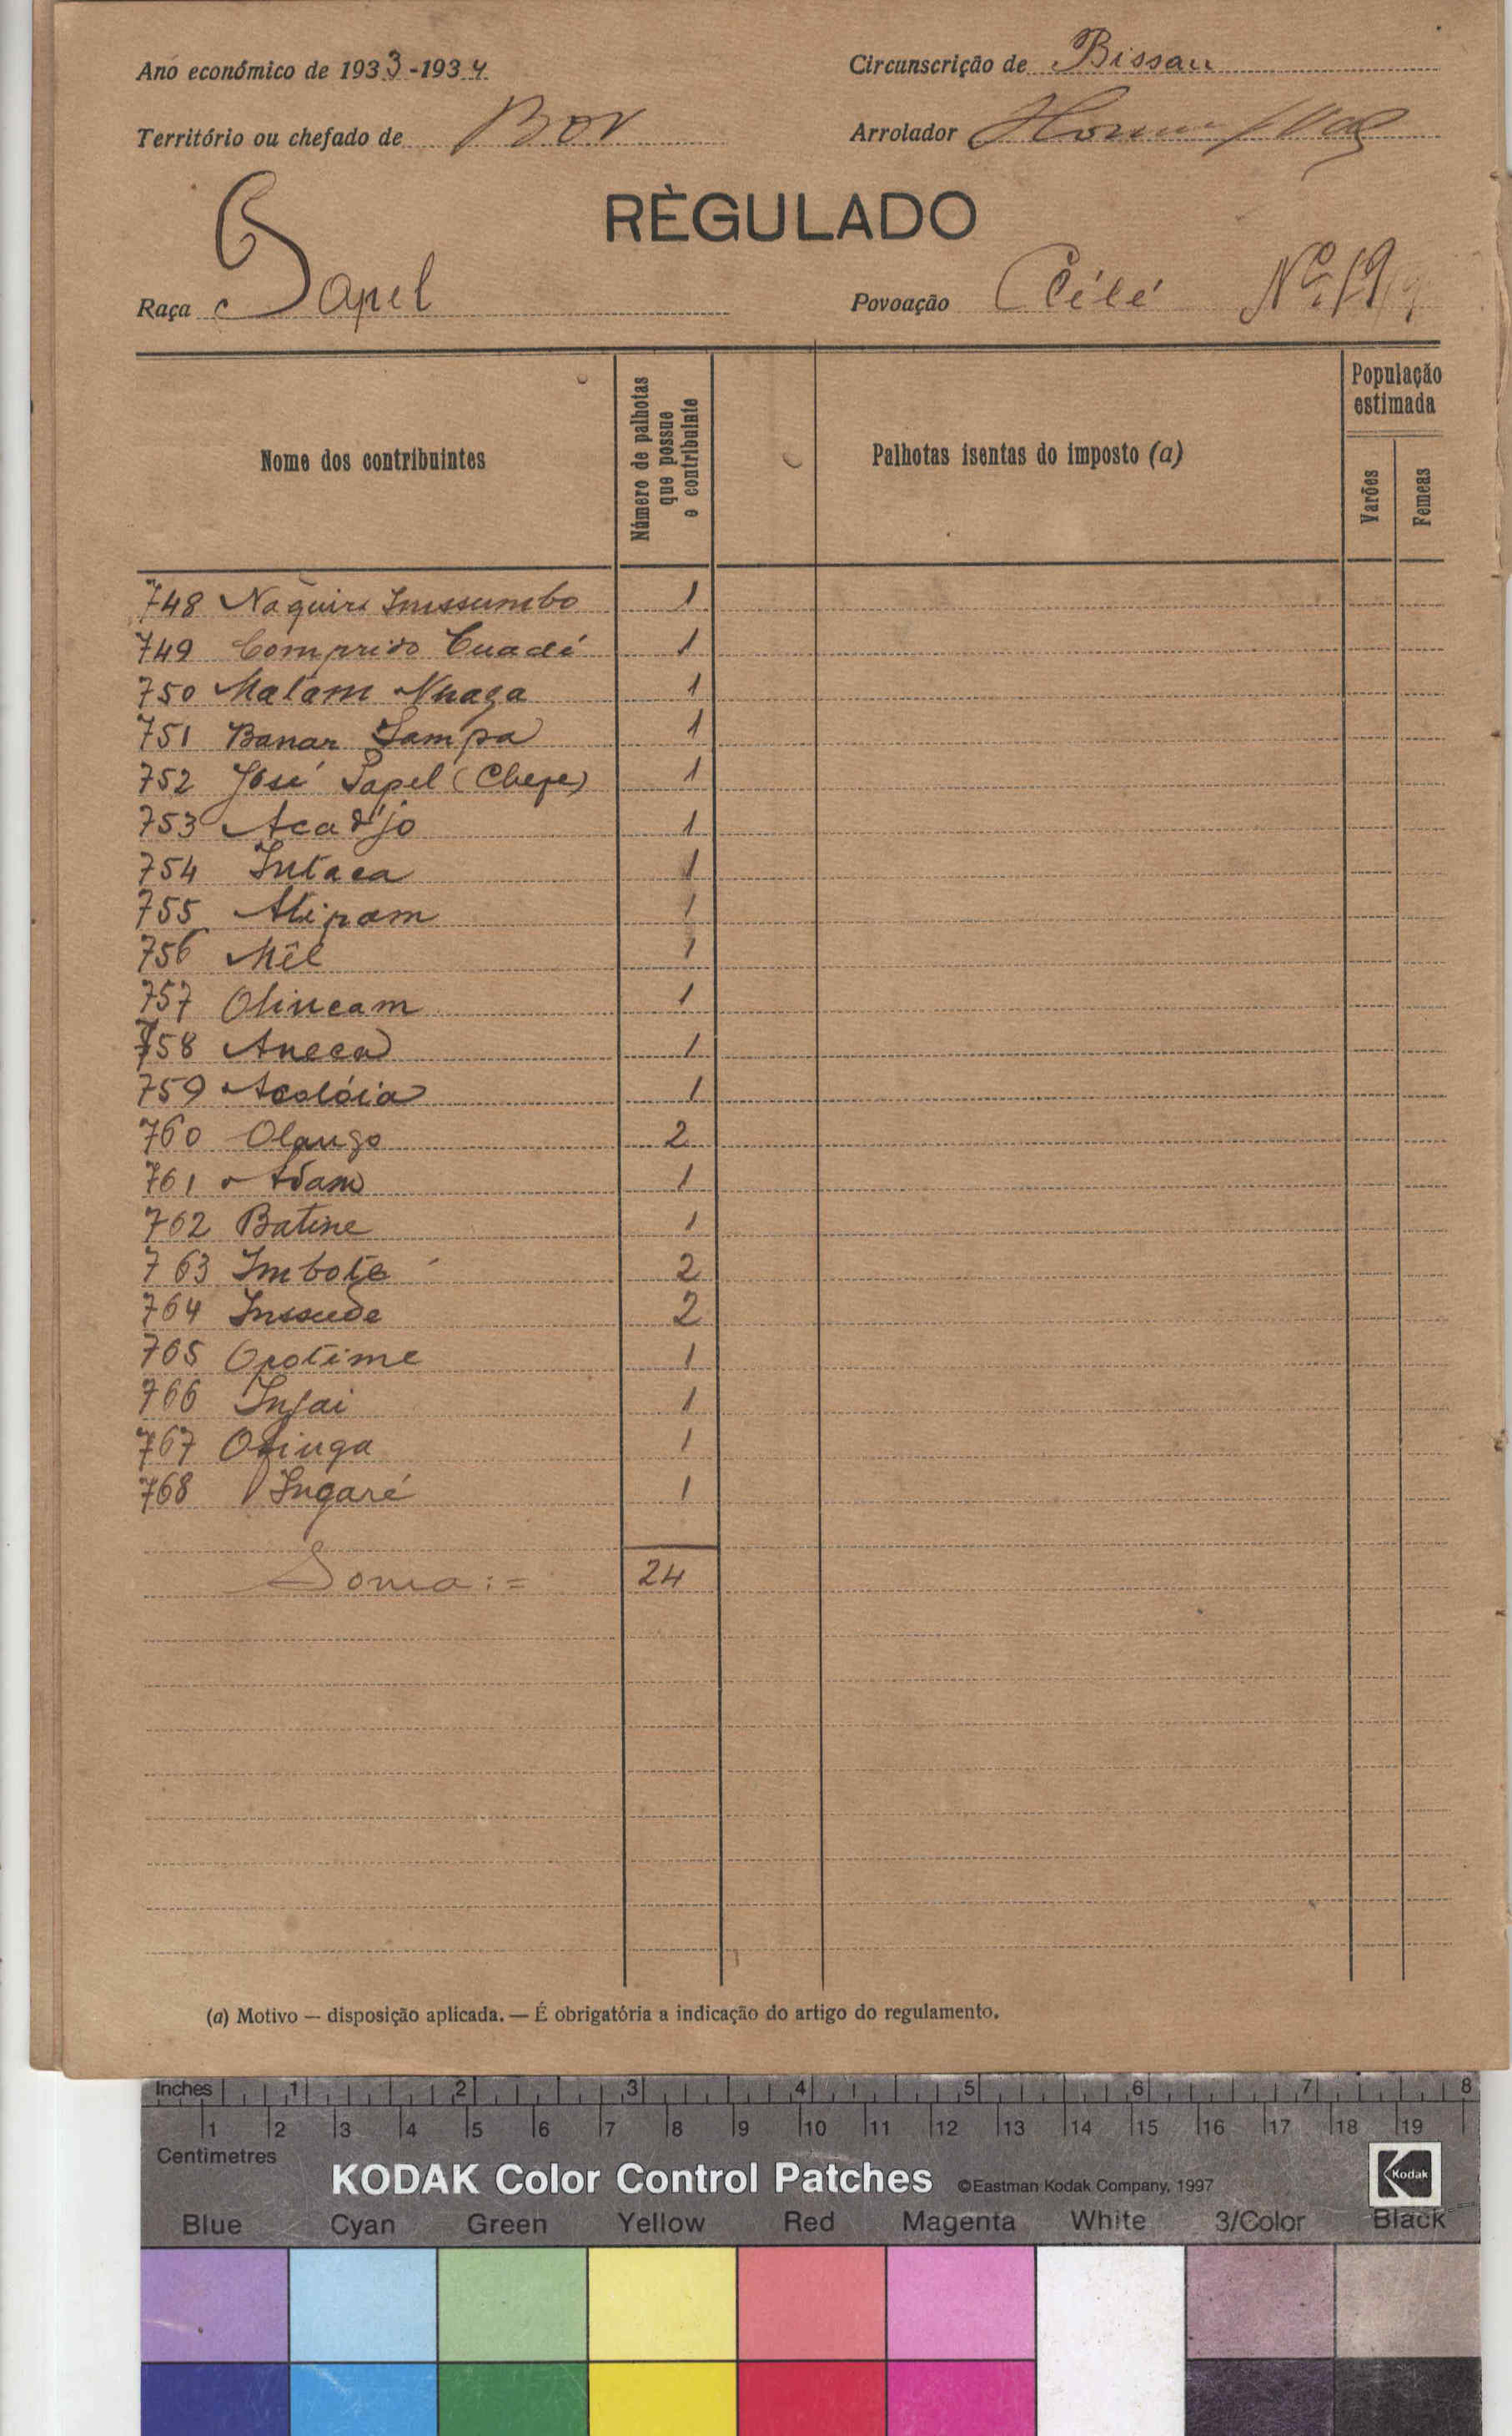 Ano económico de 1933-1934
Circunscrição de Bissau
Território ou chefado de Bor
Arrolador
RÈGULADO
Raça Papel
Povoação Célé Nº 19
Nome dos contribuintes
Número de palhotas que possue o contribuinte
Palhotas isentas do imposto (a)
População estimada
Varões
Femeas
748 Naquire Imssumbo 1
749 Comprido Cuadé 1
750 Malam Nhaga 1
751 Banar Sampa 1
752 José Papel (Chefe) 1
753 Acadjo 1
754 Intaca 1
755 Atipam 1
756 Mêl 1
757 Olincam 1
758 Aneca 1
759 Acolóia 1
760 Olango 2
761 Adam 1
762 Batine 1
763 Imbote 2
764 Inssude 2
765 Opotime 1
766 Injai 1
767 Ofinga 1
768 Ingaré 1
Soma:= 24
(a) Motivo — disposição aplicada. — É obrigatória a indicação do artigo do regulamento.
Inches 1 2 3 4 5 6 7 8
1 2 3 4 5 6 7 8 9 10 11 12 13 14 15 16 17 18 19
Centimetres
KODAK Color Control Patches ©Eastman Kodak Company, 1997 Kodak
Blue Cyan Green Yellow Red Magenta White 3/Color Black